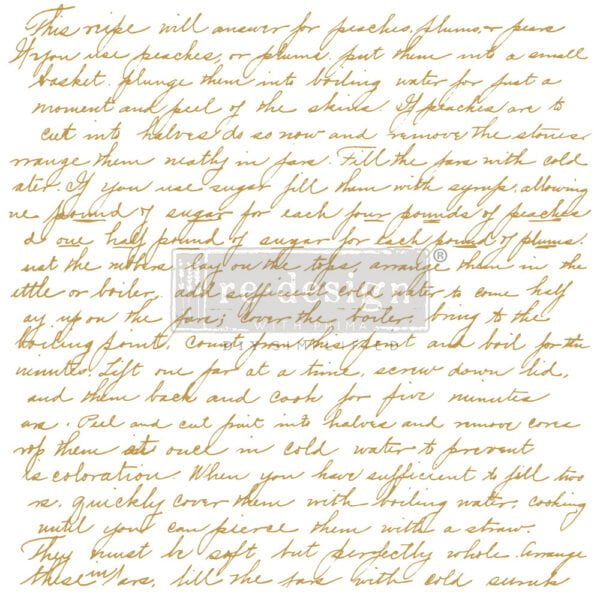 This recipe will answer for peaches, plums, + pears
If you use peaches, or plums, put them into a small
basket. plunge them into boiling water for just a
moment and peel of the skins. If peaches are to
cut into halves do so now and remove the stones.
rrange them neatly in jars. Fill the jars with cold
ater. If you use sugar fill them with syrup, allowing
ne pound of sugar for each four pounds of peaches
d one half pound of sugar for each pound of plums.
ust the rubbers lay on the tops, arrange them in the
ettle or boiler, add sufficient cold ater to come half
ay up on the jars; cover the boiler, bring to the
boiling point, count from this point and boil for
minutes. Lift one jar at a time, screw down lid,
and them back and cook for five minutes
ars. Peel and cut fruit into halves and remove cores
rop them at once in cold water to prevent
is coloration. When you have sufficient to fill two
rs, quickly cover them with boiling water, cooking
until you can pierce them with a straw.
They must be soft but perfectly whole. Arrange
these in jars, fill the jars with cold
re·design®
WITH PRIMA